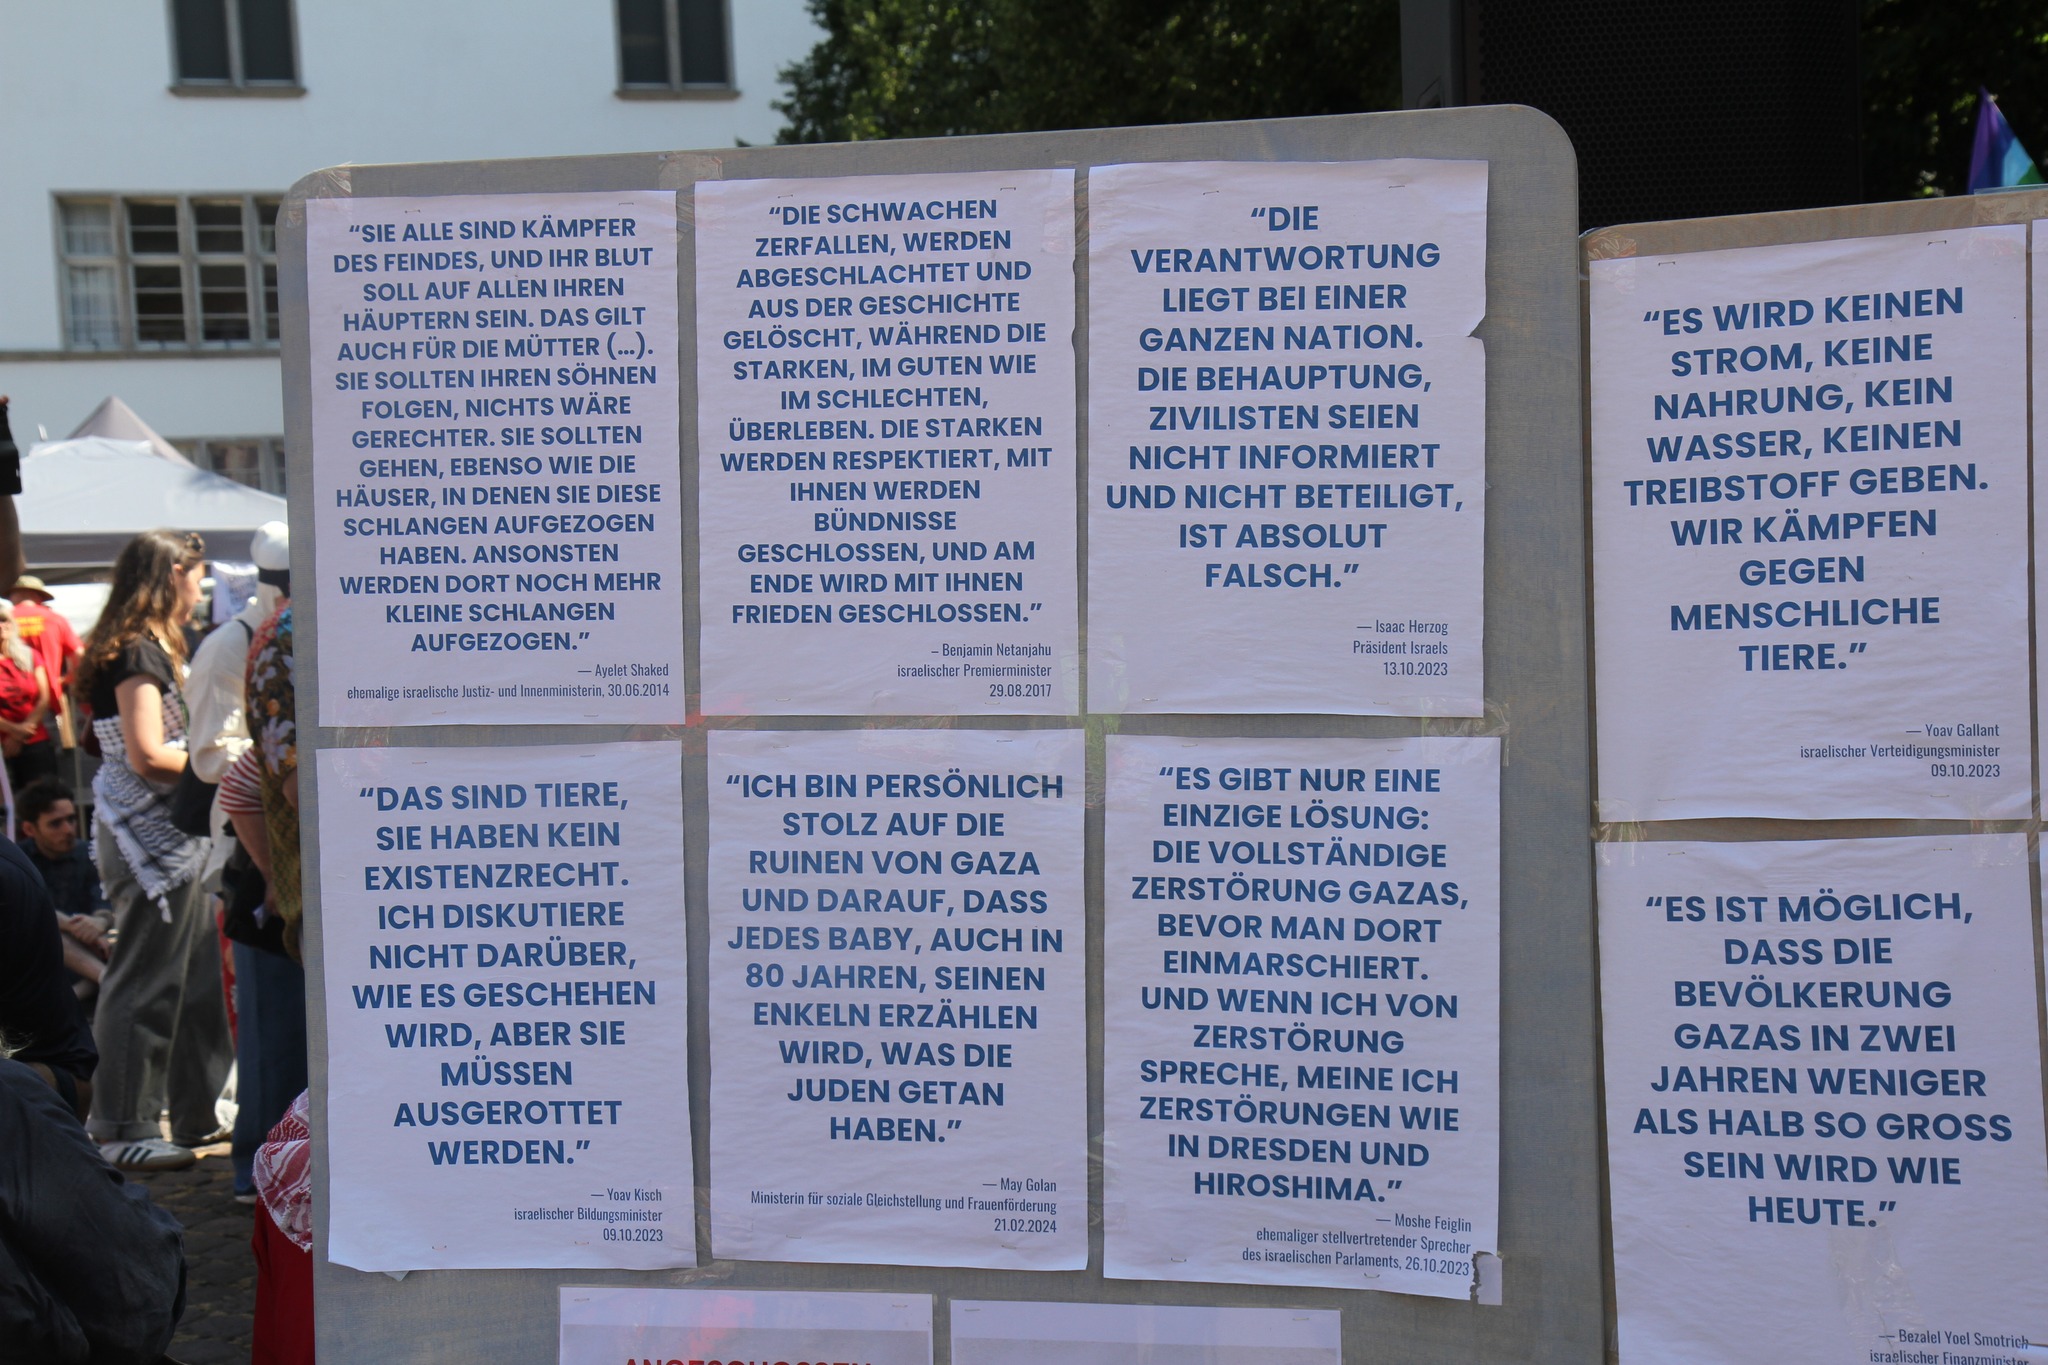 “SIE ALLE SIND KÄMPFER
DES FEINDES, UND IHR BLUT
SOLL AUF ALLEN IHREN
HÄUPTERN SEIN. DAS GILT
AUCH FÜR DIE MÜTTER (...).
SIE SOLLTEN IHREN SÖHNEN
FOLGEN, NICHTS WÄRE
GERECHTER. SIE SOLLTEN
GEHEN, EBENSO WIE DIE
HÄUSER, IN DENEN SIE DIESE
SCHLANGEN AUFGEZOGEN
HABEN. ANSONSTEN
WERDEN DORT NOCH MEHR
KLEINE SCHLANGEN
AUFGEZOGEN.”
— Ayelet Shaked
ehemalige israelische Justiz- und Innenministerin, 30.06.2014
“DIE SCHWACHEN
ZERFALLEN, WERDEN
ABGESCHLACHTET UND
AUS DER GESCHICHTE
GELÖSCHT, WÄHREND DIE
STARKEN, IM GUTEN WIE
IM SCHLECHTEN,
ÜBERLEBEN. DIE STARKEN
WERDEN RESPEKTIERT, MIT
IHNEN WERDEN
BÜNDNISSE
GESCHLOSSEN, UND AM
ENDE WIRD MIT IHNEN
FRIEDEN GESCHLOSSEN.”
– Benjamin Netanjahu
israelischer Premierminister
29.08.2017
“DIE
VERANTWORTUNG
LIEGT BEI EINER
GANZEN NATION.
DIE BEHAUPTUNG,
ZIVILISTEN SEIEN
NICHT INFORMIERT
UND NICHT BETEILIGT,
IST ABSOLUT
FALSCH.”
— Isaac Herzog
Präsident Israels
13.10.2023
“ES WIRD KEINEN
STROM, KEINE
NAHRUNG, KEIN
WASSER, KEINEN
TREIBSTOFF GEBEN.
WIR KÄMPFEN
GEGEN
MENSCHLICHE
TIERE.”
— Yoav Gallant
israelischer Verteidigungsminister
09.10.2023
“DAS SIND TIERE,
SIE HABEN KEIN
EXISTENZRECHT.
ICH DISKUTIERE
NICHT DARÜBER,
WIE ES GESCHEHEN
WIRD, ABER SIE
MÜSSEN
AUSGEROTTET
WERDEN.”
— Yoav Kisch
israelischer Bildungsminister
09.10.2023
“ICH BIN PERSÖNLICH
STOLZ AUF DIE
RUINEN VON GAZA
UND DARAUF, DASS
JEDES BABY, AUCH IN
80 JAHREN, SEINEN
ENKELN ERZÄHLEN
WIRD, WAS DIE
JUDEN GETAN
HABEN.”
— May Golan
Ministerin für soziale Gleichstellung und Frauenförderung
21.02.2024
“ES GIBT NUR EINE
EINZIGE LÖSUNG:
DIE VOLLSTÄNDIGE
ZERSTÖRUNG GAZAS,
BEVOR MAN DORT
EINMARSCHIERT.
UND WENN ICH VON
ZERSTÖRUNG
SPRECHE, MEINE ICH
ZERSTÖRUNGEN WIE
IN DRESDEN UND
HIROSHIMA.”
— Moshe Feiglin
ehemaliger stellvertretender Sprecher
des israelischen Parlaments, 26.10.2023
“ES IST MÖGLICH,
DASS DIE
BEVÖLKERUNG
GAZAS IN ZWEI
JAHREN WENIGER
ALS HALB SO GROSS
SEIN WIRD WIE
HEUTE.”
— Bezalel Yoel Smotrich
israelischer Finanzminister
ANGESCHOSSEN